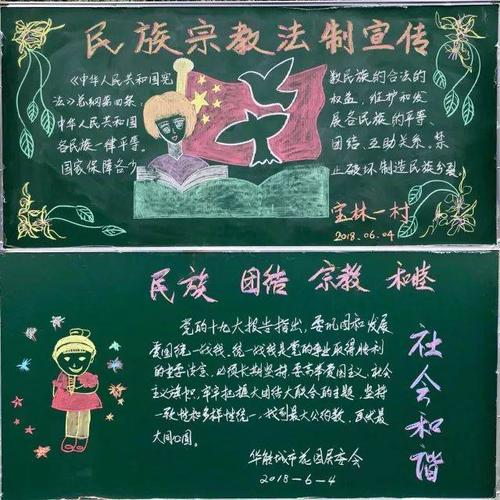 民族宗教法制宣传
《中华人民共和国宪
法》总纲第四条
中华人民共和国
各民族一律平等。
国家保障各少
数民族的合法的
权益，维护和发
展各民族的平等、
团结、互助关系。禁
止破坏制造民族分裂
宝林一村
2018.06.04
民族 团结 宗教 和睦
党的十九大报告指出，要巩固和发展
爱国统一战线，统一战线是党的事业取得胜利
的重要法宝，必须长期坚持。要高举爱国主义、社会
主义旗帜，牢牢把握大团结大联合的主题，坚持
一致性和多样性统一，找到最大公约数，画出最
大同心圆。
社会和谐
华能城市花园居委会
2018-6-4